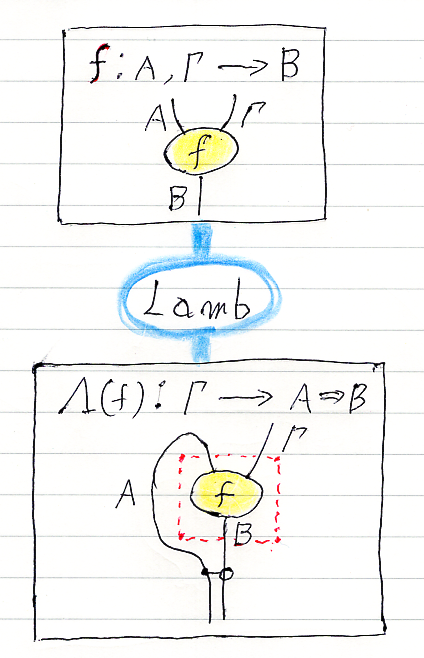 f : A, Γ → B
A Γ
f
B
Lamb
Λ(f) : Γ → A ⇒ B
Γ
A f
B